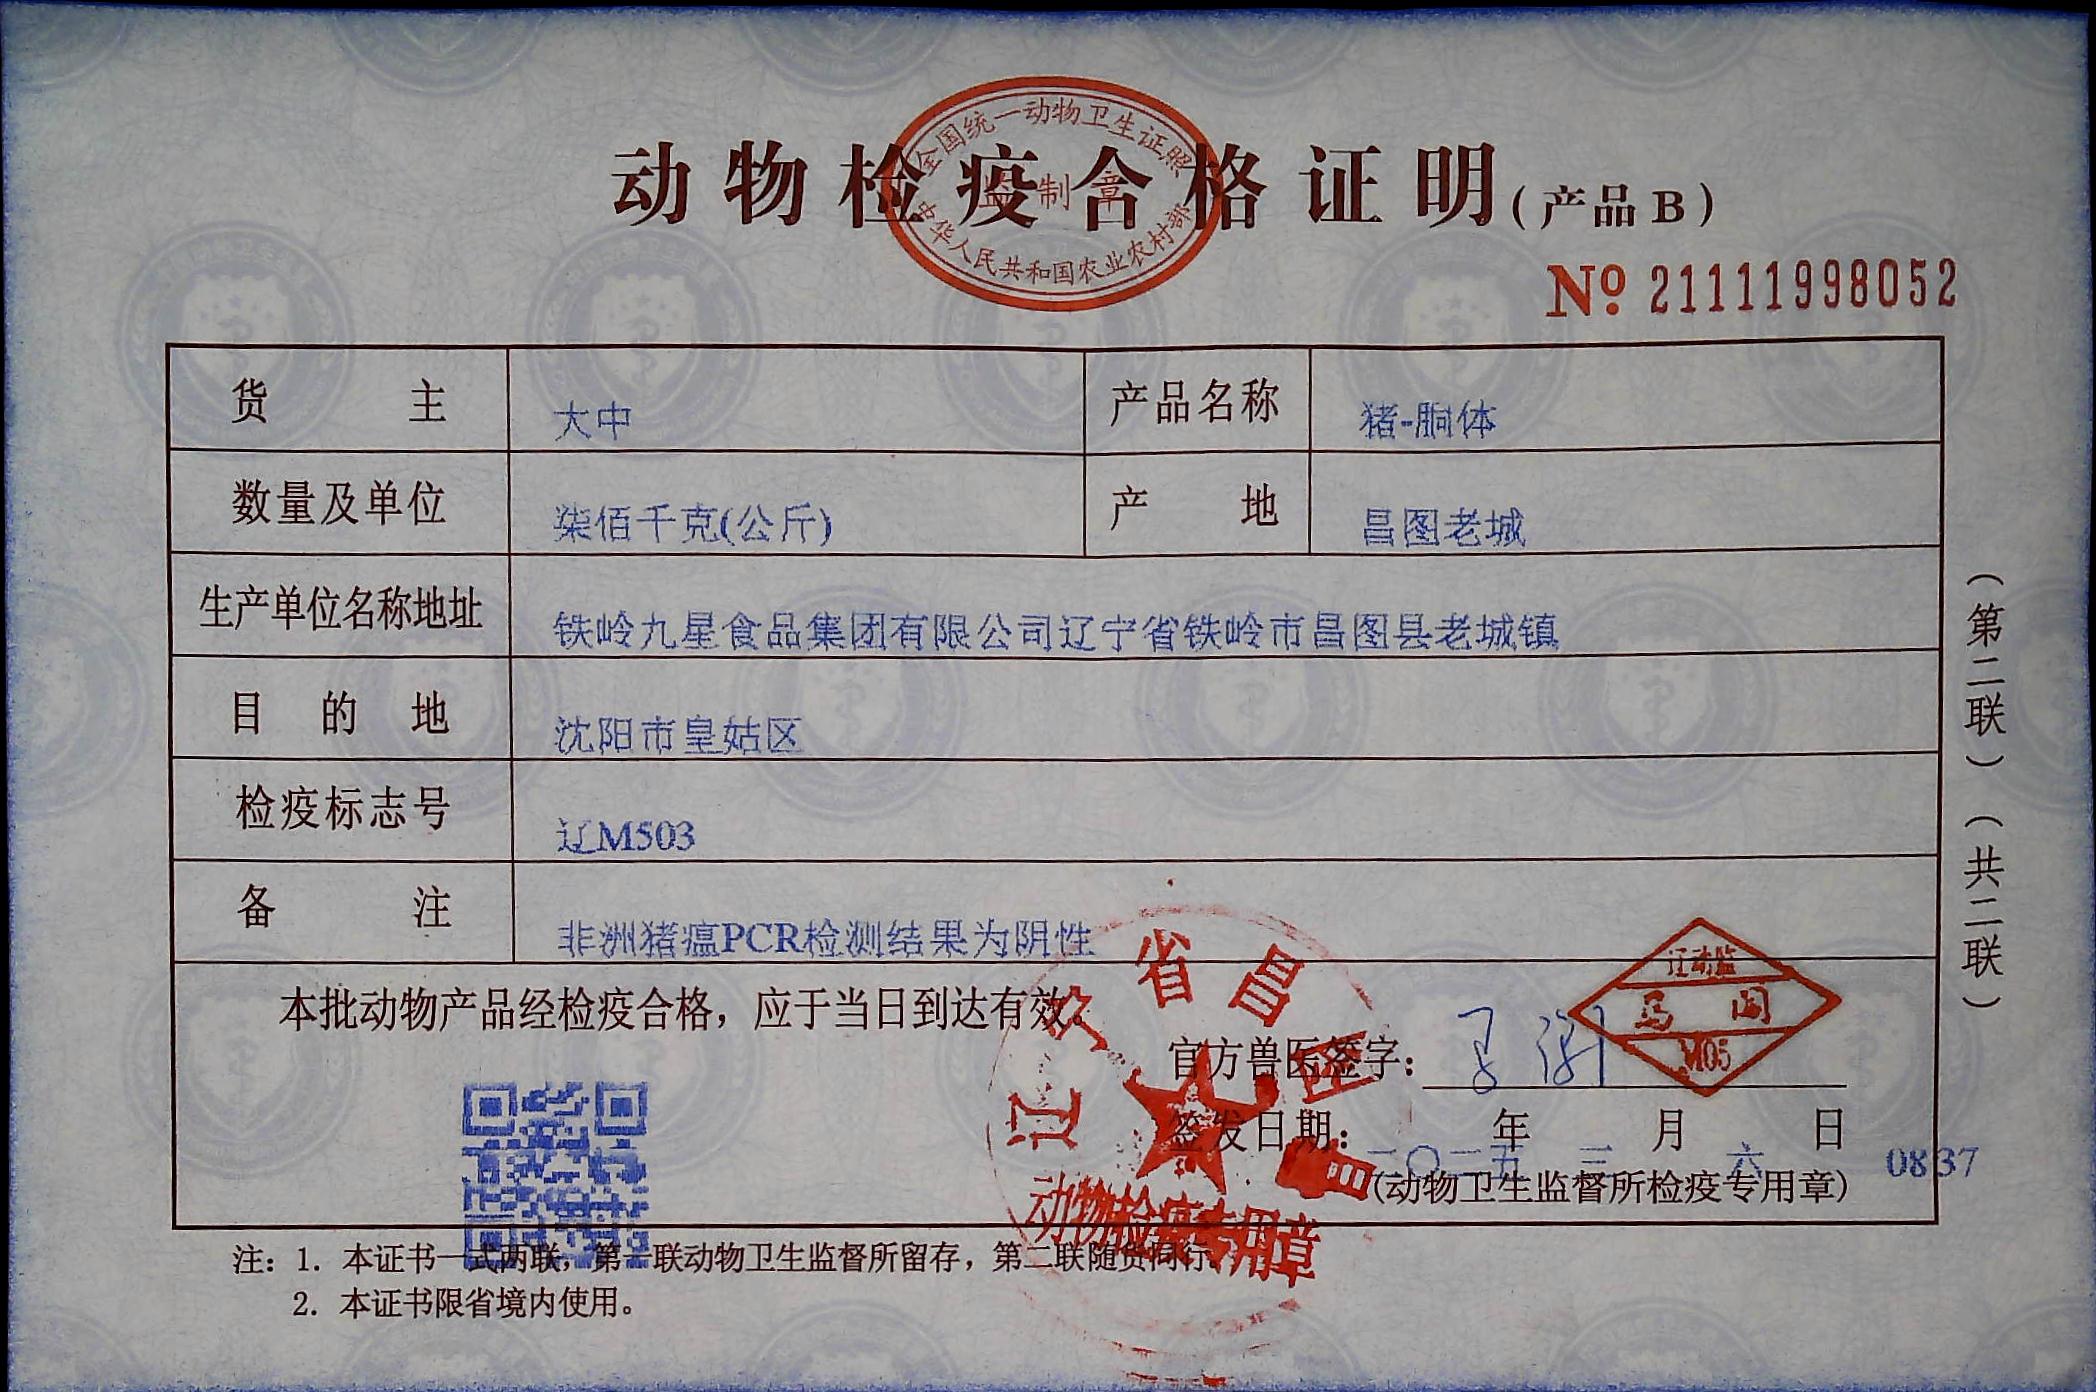 动物检疫合格证明(产品B)
全国统一动物卫生证照
监制章
中华人民共和国农业农村部
№ 21111998052
货主 大中 产品名称 猪-胴体
数量及单位 柒佰千克(公斤) 产地 昌图老城
生产单位名称地址 铁岭九星食品集团有限公司辽宁省铁岭市昌图县老城镇
目的地 沈阳市皇姑区
检疫标志号 辽M503
备注 非洲猪瘟PCR检测结果为阴性
本批动物产品经检疫合格，应于当日到达有效。
官方兽医签字：
辽动监
M05
签发日期： 二〇二五年 三月 六日 0837
(动物卫生监督所检疫专用章)
辽宁省昌图
动物检疫专用章
注：1. 本证书一式两联，第一联动物卫生监督所留存，第二联随货同行。
2. 本证书限省境内使用。
（第二联）（共二联）